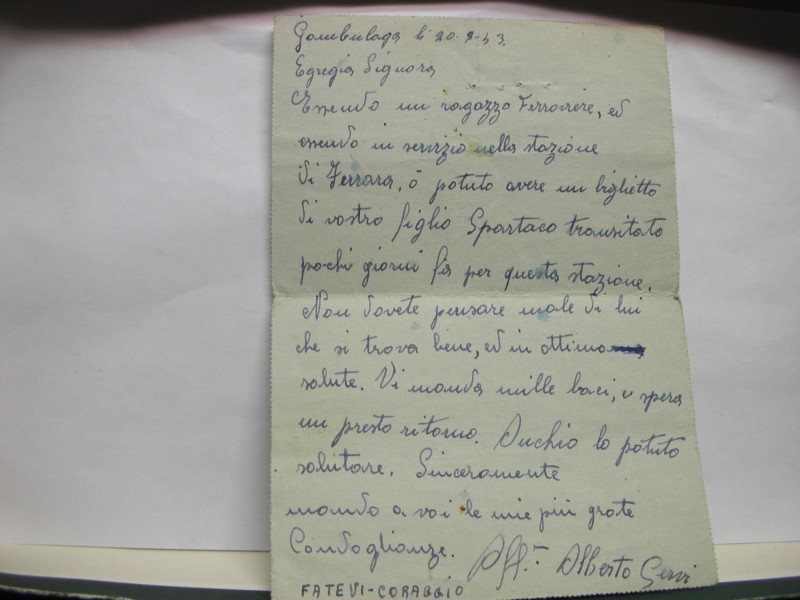 Gambulaga li 20-9-43.
Egregia Signora
Essendo un ragazzo Ferroviere, ed
essendo in servizio nella stazione
di Ferrara, ò potuto avere un biglietto
di vostro figlio Spartaco transitato
pochi giorni fà per questa stazione.
Non dovete pensare male di lui
che si trova bene, ed in ottimo
salute. Vi manda mille baci, e spera
un presto ritorno. Anchio lo potuto
salutare. Sinceramente
mando a voi le mie più grate
Condoglianze. Aff.mo Alberto
FATEVI-CORAGGIO